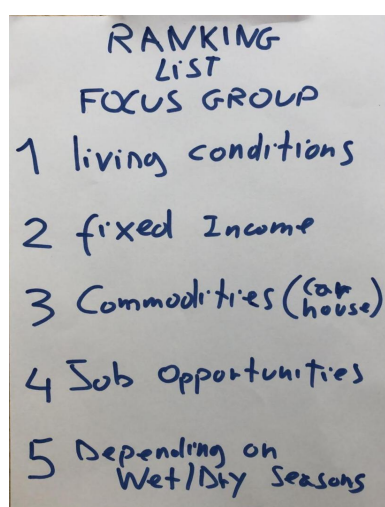 RANKING
LIST
FOCUS GROUP
1 living conditions
2 fixed Income
3 Commodities (car
house)
4 Job Opportunities
5 Depending on
Wet/Dry Seasons